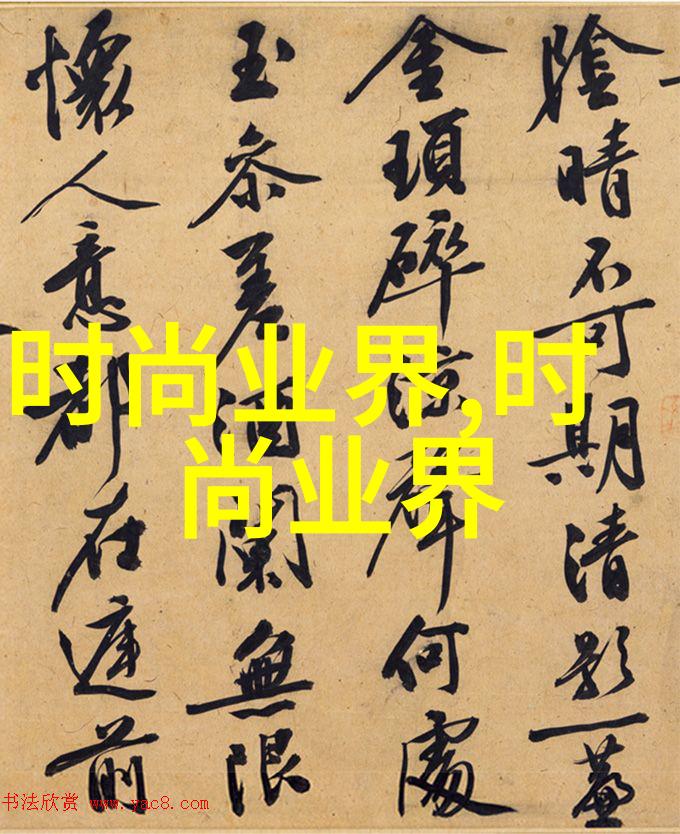 陰晴不可期清影一簾
金瑣碎涼聲何處
玉參差酒闌無限
懷人意都在庭前
时尚业界,时
尚业界
书法欣赏 www.yac8.com